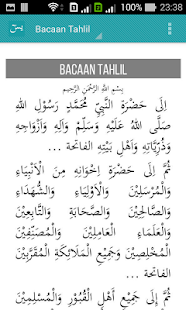 23:38
Bacaan Tahlil
BACAAN TAHLIL
بِسْمِ اللهِ الرَّحْمٰنِ الرَّحِيْمِ
إِلَى حَضْرَةِ النَّبِيِّ مُحَمَّدٍ رَسُوْلِ اللهِ
صَلَّى اللهُ عَلَيْهِ وَسَلَّمَ وَآلِهِ وَأَزْوَاجِهِ
وَذُرِّيَّاتِهِ وَأَهْلِ بَيْتِهِ الفاتحة ...
ثُمَّ إِلَى حَضْرَةِ اِخْوَانِهِ مِنَ الْأَنْبِيَاءِ
وَالْمُرْسَلِيْنَ وَالْأَوْلِيَاءِ وَالشُّهَدَاءِ
وَالصَّالِحِيْنَ وَالصَّحَابَةِ وَالتَّابِعِيْنَ
وَالْعُلَمَاءِ الْعَامِلِيْنَ وَالْمُصَنِّفِيْنَ
الْمُخْلِصِيْنَ وَجَمِيْعِ الْمَلَائِكَةِ الْمُقَرَّبِيْنَ
الفاتحة ...
ثُمَّ إِلَى جَمِيْعِ أَهْلِ الْقُبُوْرِ وَالْمُسْلِمِيْنَ